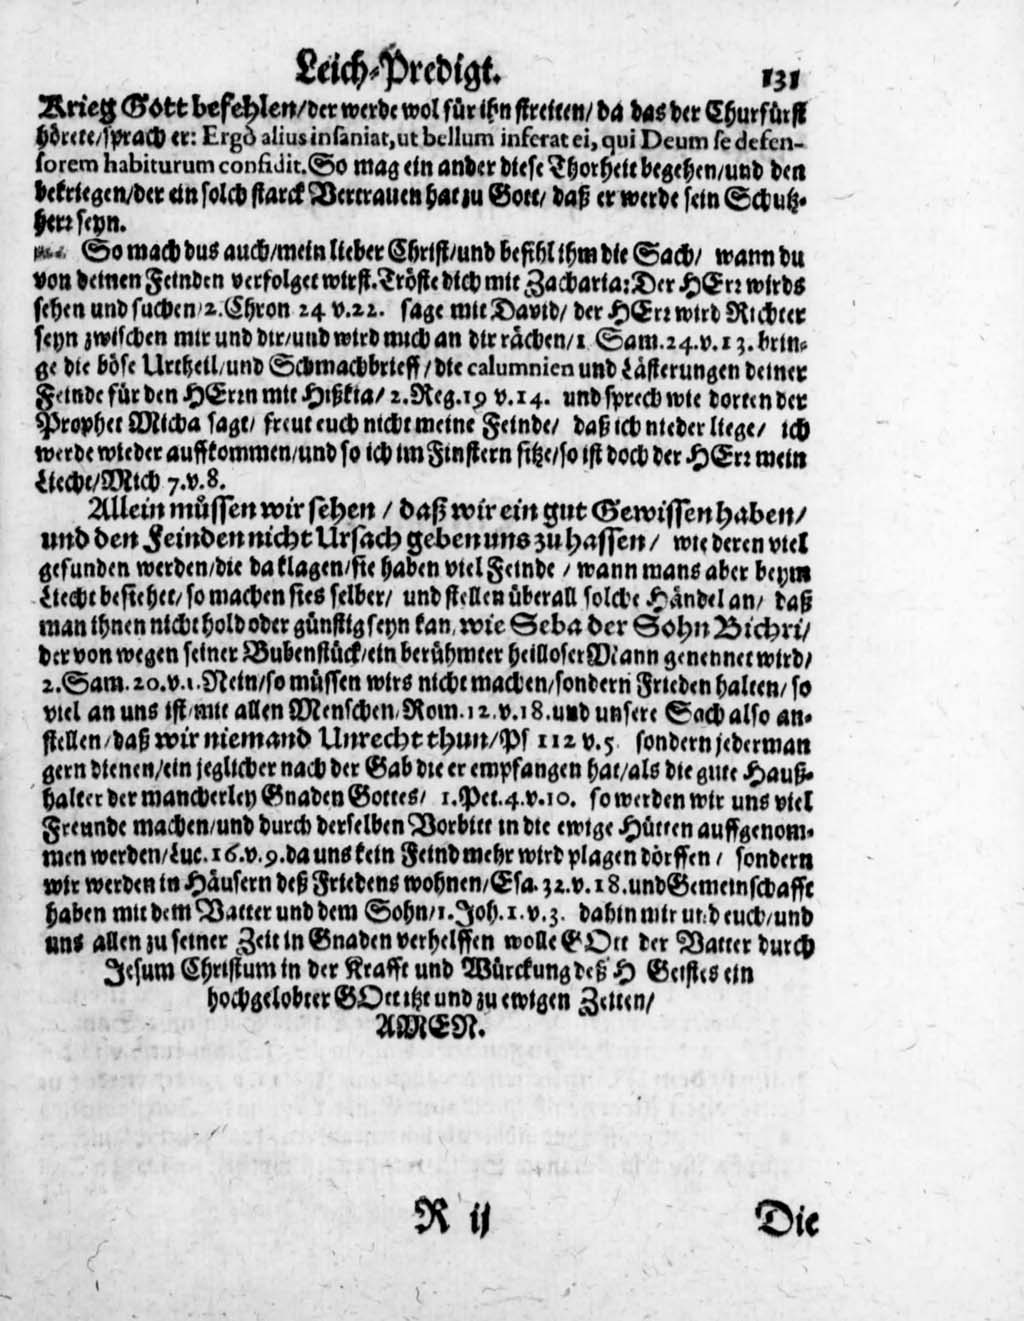 Leich-Predigt. 131
Krieg Gott befehlen/der werde wol für ihn streiten/ da das der Churfürst
hörete/sprach er: Ergò alius insaniat, ut bellum inferat ei, qui Deum se defen-
sorem habiturum confidit. So mag ein ander diese Thorheit begehen/und den
bekriegen/der ein solch starck Vertrauen hat zu Gott/ daß er werde sein Schutz-
herr seyn.
So mach dus auch/mein lieber Christ/und befihl ihm die Sach/ wann du
von deinen Feinden verfolget wirst. Tröste dich mit Zacharia: Der HErr wirds
sehen und suchen/2. Chron 24 v.22. sage mit David/ der HErr wird Richter
seyn zwischen mir und dir/und wird mich an dir rächen/1 Sam.24.v.13. brin-
ge die böse Urtheil/und Schmachbrieff/die calumnien und Lästerungen deiner
Feinde für den HErrn mit Hißkia/ 2. Reg.19 v.14. und sprech wie dorten der
Prophet Micha sagt/ freut euch nicht meine Feinde/ daß ich nieder liege/ ich
werde wieder auffkommen/und so ich im Finstern sitze/so ist doch der HErr mein
Liecht/Mich 7.v.8.
Allein müssen wir sehen / daß wir ein gut Gewissen haben/
und den Feinden nicht Ursach geben uns zu hassen/ wie deren viel
gefunden werden/die da klagen/sie haben viel Feinde / wann mans aber beym
Liecht besiehet/ so machen sies selber/ und stellen überall solche Händel an/ daß
man ihnen nicht hold oder günstig seyn kan, wie Seba der Sohn Bichri/
der von wegen seiner Bubenstück/ein berühmter heilloser Mann genennet wird/
2. Sam. 20.v.1. Nein/so müssen wirs nicht machen/sondern Frieden halten/ so
viel an uns ist/mit allen Menschen/Rom.12.v.18. und unsere Sach also an-
stellen/daß wir niemand Unrecht thun/Ps 112 v.5 sondern jederman
gern dienen/ein jeglicher nach der Gab die er empfangen hat/als die gute Hauß-
halter der mancherley Gnaden Gottes/ 1. Pet.4.v.10. so werden wir uns viel
Freunde machen/und durch derselben Vorbitt in die ewige Hütten auffgenom-
men werden/Luc. 16.v.9. da uns kein Feind mehr wird plagen dörffen / sondern
wir werden in Häusern deß Friedens wohnen/Esa. 32.v.18. und Gemeinschafft
haben mit dem Vatter und dem Sohn/1. Joh. 1. v.3. dahin mir und euch/und
uns allen zu seiner Zeit in Gnaden verhelffen wolle GOtt der Vatter durch
Jesum Christum in der Krafft und Würckung deß H Geistes ein
hochgelobter GOtt itzt und zu ewigen Zeiten/
AMEN.
R ij Die